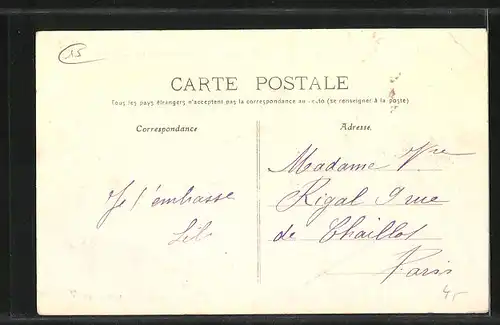 15
CARTE POSTALE
Tous les pays étrangers n'acceptent pas la correspondance au recto (se renseigner à la poste)
Correspondance
Adresse
Madame Vve
Rigal 9 rue
de Chaillot
Paris
Je t'embrasse